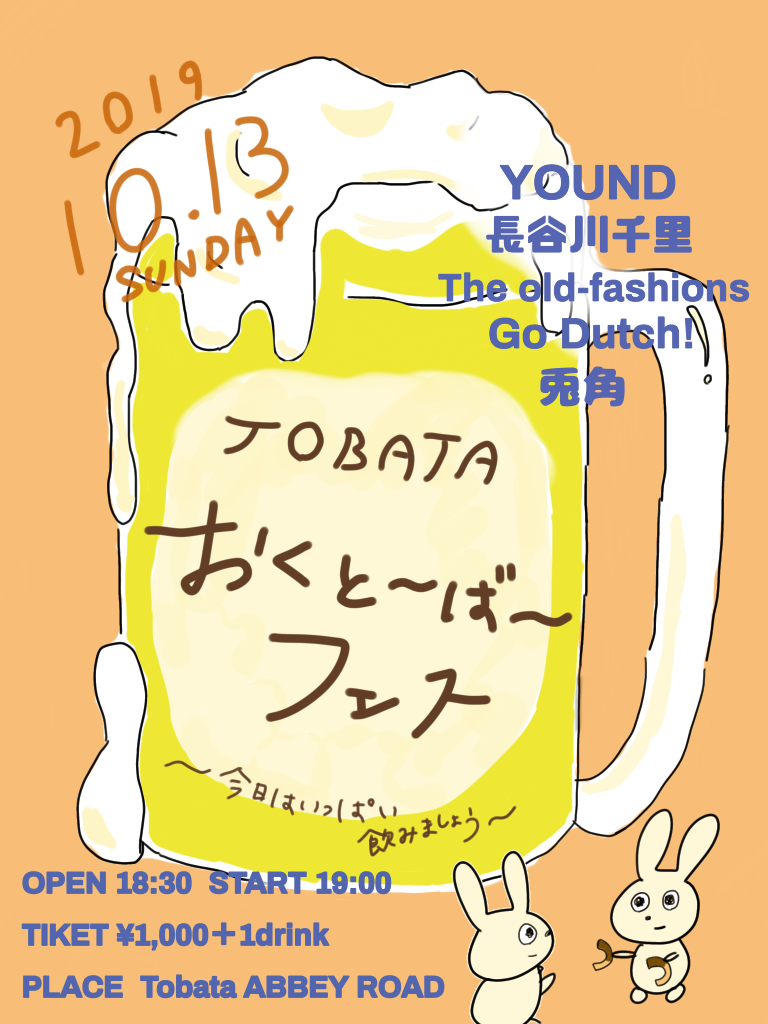 2019
10.13
SUNDAY
YOUND
長谷川千里
The old-fashions
Go Dutch!
兎角
TOBATA
おくと〜ば〜
フェス
〜今日はいっぱい
飲みましょう〜
OPEN 18:30 START 19:00
TIKET ¥1,000＋1drink
PLACE Tobata ABBEY ROAD